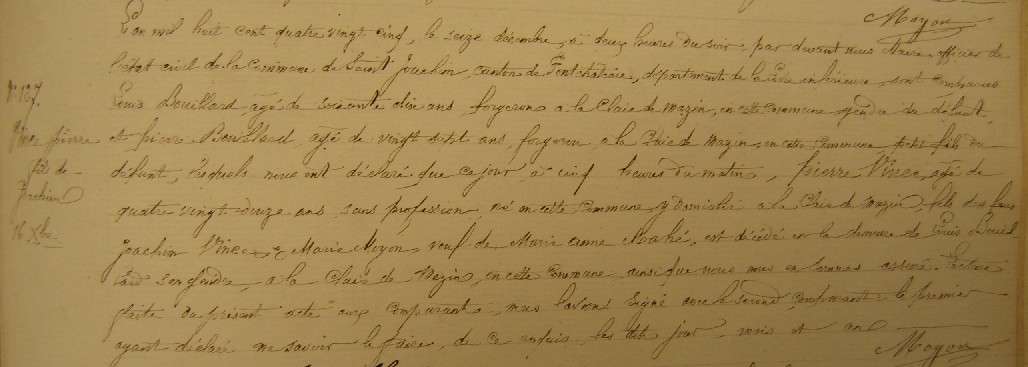 Moyon
L'an mil huit cent quatre vingt cinq, le seize décembre, à deux heures du soir, par devant nous Maire officier de
l'état civil de la Commune de Saint Joachim, canton de Pontchâteau, département de la Loire inférieure, sont comparus
N° 137.
Louis Bouillard, âgé de soixante dix ans, forgeron à la Claie de Mazin, en cette commune, gendre du défunt,
Vince pierre
et pierre Bouillard, âgé de vingt sept ans, forgeron, à la Claie de Mazin, en cette Commune petit fils du
fils de
défunt, lesquels nous ont déclaré que ce jour, à cinq heures du matin, Pierre Vince, âgé de
Joachim
quatre vingt douze ans, sans profession, né en cette Commune, y domicilié à la Claie de Mazin, fils des feus
16 Xbre.
Joachim Vince & Marie Moyon veuf de Marie Mahé, est décédé en la demeure de Louis Bouil
lard son gendre, à la Claie de Mazin, en cette Commune, ainsi que nous nous en sommes assuré. Lecture
faite du présent acte aux comparants, nous l'avons signé avec le second comparant, le premier
ayant déclaré ne savoir le faire, de ce enquis, les dits jour, mois et an
Moyon